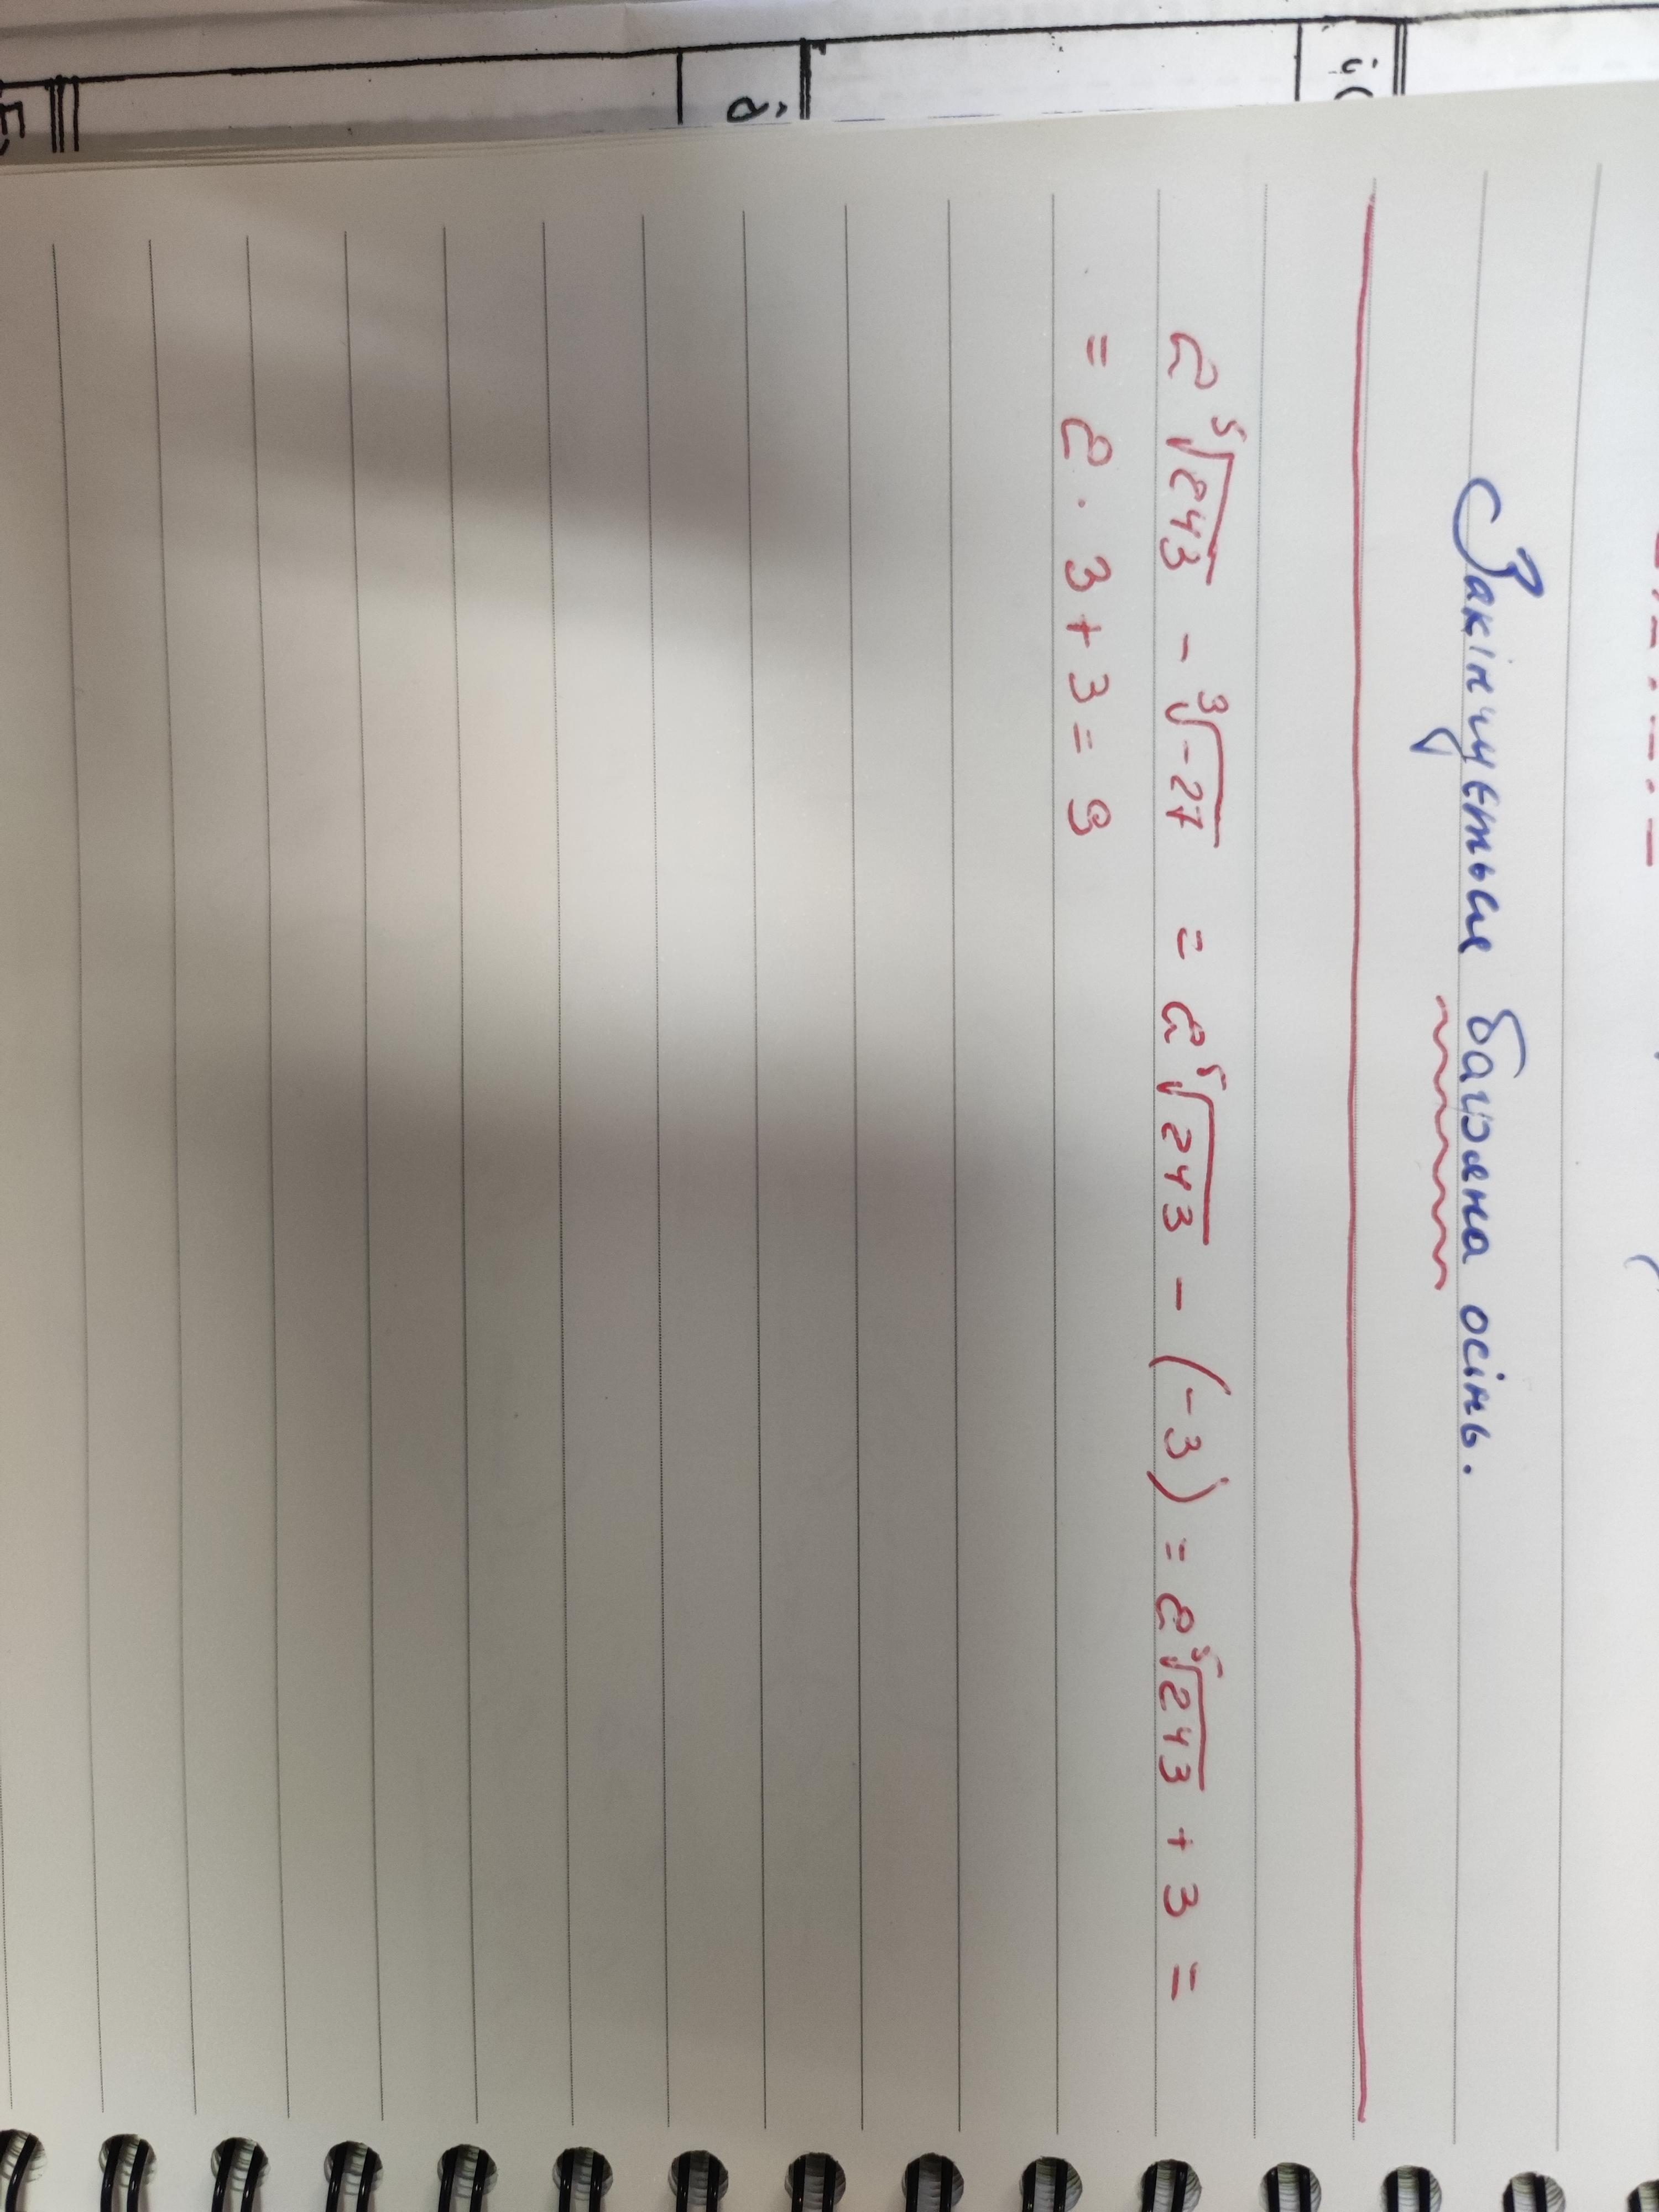 Закінчується багряна осінь.
2⁵√243 - ³√-27 = 2⁵√243 - (-3) = 2⁵√243 + 3 =
= 2 · 3 + 3 = 9